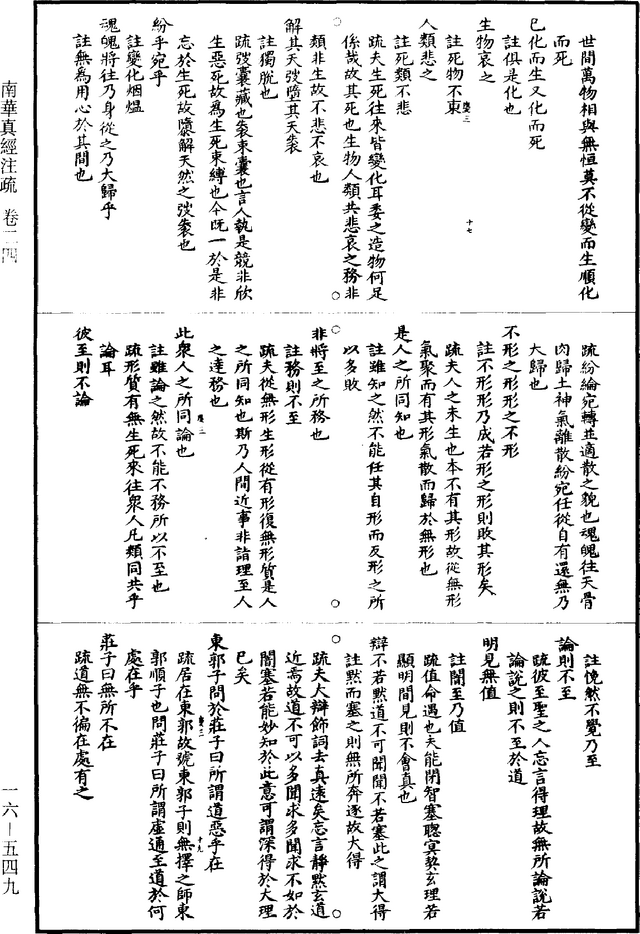 世間萬物相與無恒莫不從變而生順化
而死
已化而生又化而死
註俱是化也
生物哀之
註死物不哀
人類悲之
註死類不悲
疏夫生死往來皆變化耳委之造物何足
係哉故其死也生物人類共悲哀之務非
類非生故不悲不哀也
解其天弢墮其天袠
註獨脫也
疏弢囊藏也袠束囊也言人執是競非欣
生惡死故為生死束縛也今既一於是非
忘於生死故隳解天然之弢袠也
紛乎宛乎
註變化烟熅
魂魄將往乃身從之乃大歸乎
註無為用心於其間也
疏紛綸宛轉並適散之貌也魂魄往天骨
肉歸土神氣離散紛宛任從自有還無乃
大歸也
不形之形形之不形
註不形形乃成若形之形則敗其形矣
疏夫人之未生也本不有其形故從無形
氣聚而有其形氣散而歸於無形也
是人之所同知也
註雖知之然不能任其自形而反形之所
以多敗
非將至之所務也
註務則不至
疏夫從無形生形從有形復無形質是人
之所同知也斯乃人間近事非詣理至人
之達務也
此衆人之所同論也
註雖論之然故不能不務所以不至也
疏形質有無生死來往衆人凡類同共乎
論耳
彼至則不論
註悗然不覺乃至
論則不至
疏彼至聖之人忘言得理故無所論說若
論說之則不至於道
明見無值
註闇至乃值
疏值命遇也夫能閉智塞聰冥契玄理若
顯明聞見則不會真也
辯不若默道不可聞聞不若塞此之謂大得
註默而塞之則無所奔逐故大得
疏夫大辯飾詞去真遠矣忘言靜默玄道
近焉故道不可以多聞求多聞求不如於
闇塞若能妙知於此意可謂深得於大理
已矣
東郭子問於莊子曰所謂道惡乎在
疏居在東郭故號東郭子則無擇之師東
郭順子也問莊子曰所謂虛通至道於何
處在乎
莊子曰無所不在
疏道無不徧在處有之
南華真經注疏 卷二四
一六—五四九